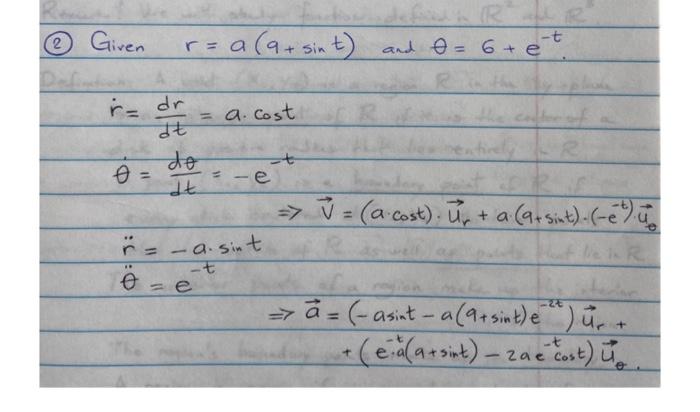 ② Given r = a(9 + sin t) and θ = 6 + e^{-t}.
ṙ = dr/dt = a · cost
θ̇ = dθ/dt = -e^{-t}
⇒ v⃗ = (a·cost)·u⃗_r + a·(9+sint)·(-e^{-t})·u⃗_θ
r̈ = -a·sint
θ̈ = e^{-t}
⇒ a⃗ = (-asint - a(9+sint)e^{-2t}) u⃗_r +
+ (e^{-t}·a(9+sint) - 2ae^{-t}cost) u⃗_θ.